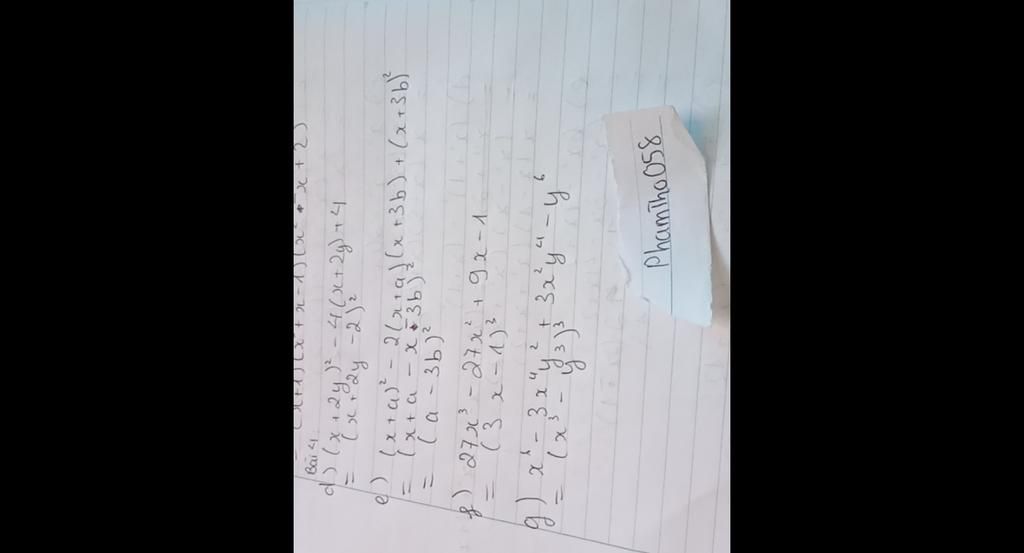 (x+1)(x+x-1)(x²-x+2)
Bài 4.
d) (x+2y)² - 4(x+2y)+4
= (x+2y-2)²
e) (x+a)² - 2(x+a)(x+3b)+(x+3b)²
= (x+a-x-3b)²
= (a-3b)²
f) 27x³ - 27x² + 9x - 1
= (3x-1)³
g) x⁶ - 3x⁴y² + 3x²y⁴ - y⁶
= (x³ - y³)³
Phamtha058